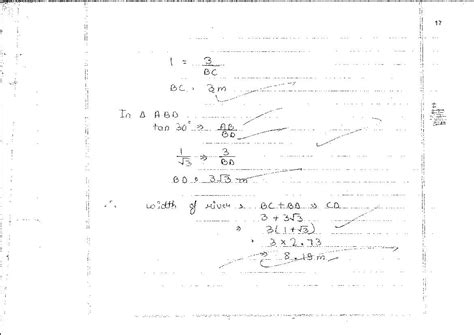 17
1 = 3/BC
BC = 3m
In Δ ABD
tan 30° ⇒ AB/BD
1/√3 ⇒ 3/BD
BD = 3√3 m
∴ width of river = BC + BD ⇒ CD
3 + 3√3
⇒ 3(1+√3)
= 3 × 2.73
⇒ 8.19m